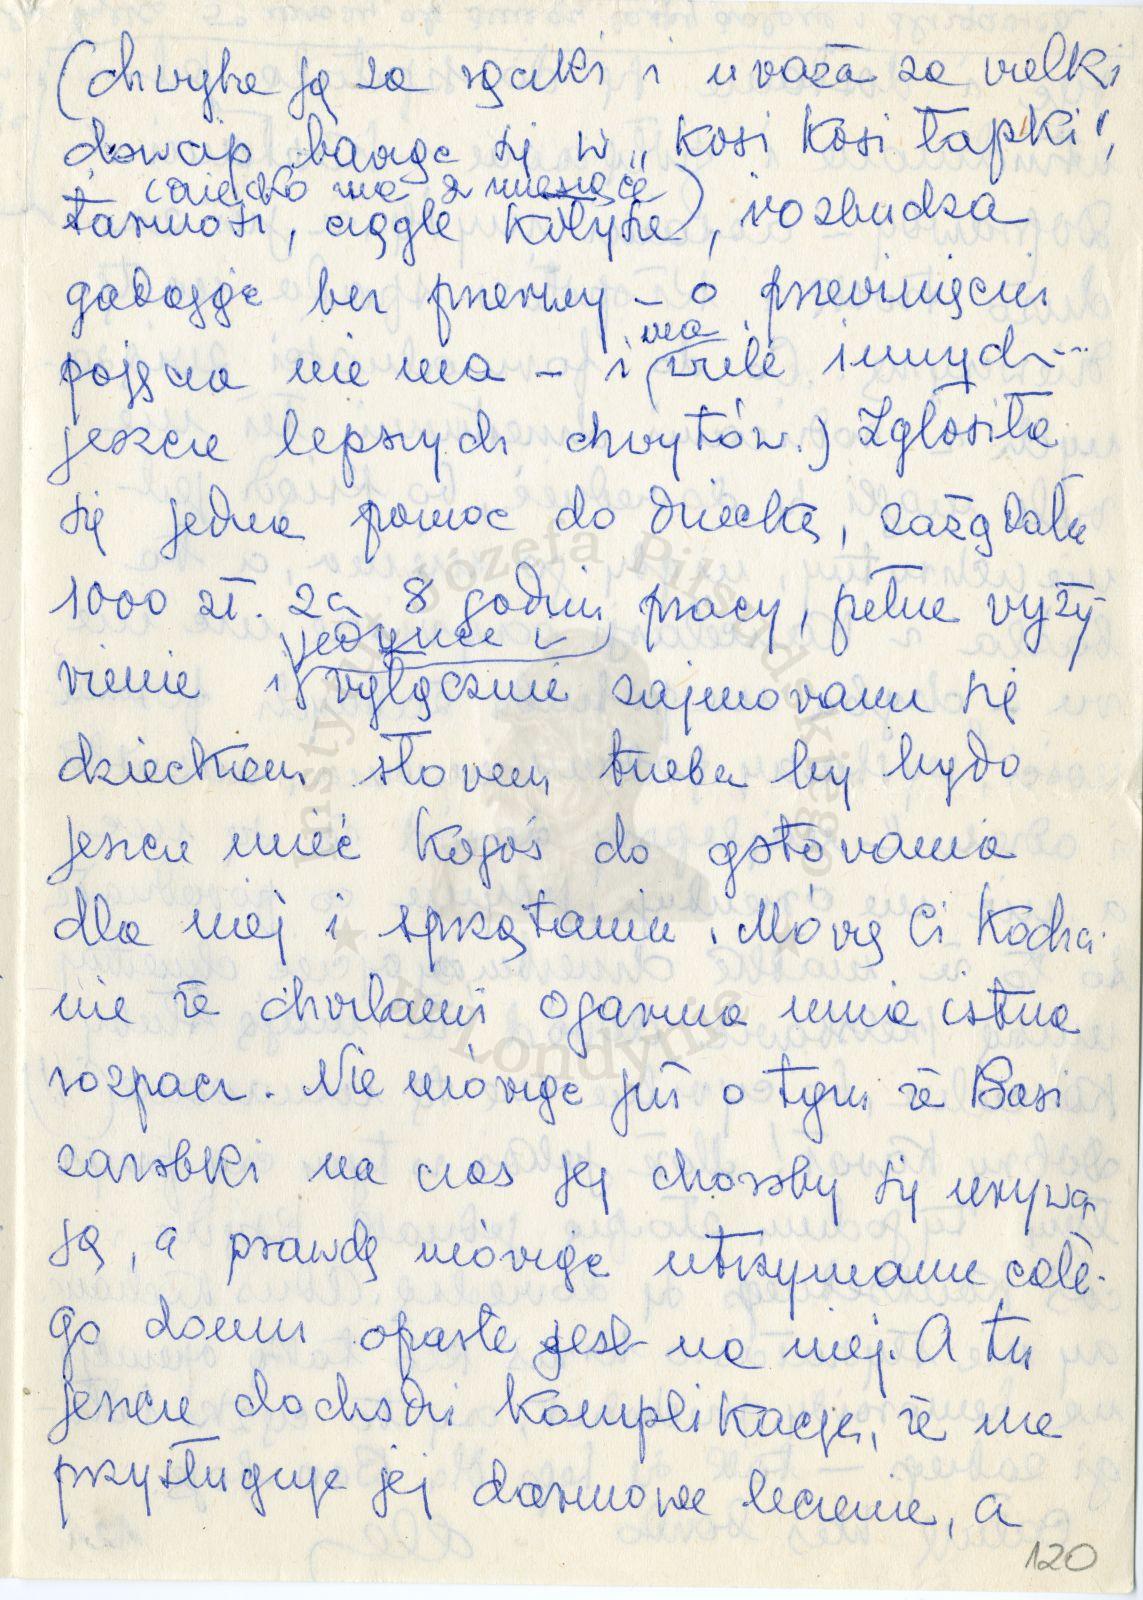 (chwyta ją za rączki i uważa za wielki
dowcip bawiąc się w „kosi kosi łapki",
(dziecko ma 2 miesiące)
tarmosi, ciągle kołysze), rozbudza
gadając bez przerwy – o przewinięciu
pojęcia nie ma – i ma wiele innych...
jeszcze lepszych chwytów.) Zgłosiła
się jedna pomoc do dziecka, zażądała
1000 zł. za 8 godzin pracy, pełne wyży
wienie i jedynie i wyłącznie zajmowanie się
dzieckiem słowem trzeba by było
jeszcze mieć kogoś do gotowania
dla niej i sprzątania. Mówię Ci Kocha-
nie że chwilami ogarnia mnie istna
rozpacz. Nie mówiąc już o tym że Basi
zarobki na czas jej choroby się urywa
ją, a prawdę mówiąc utrzymanie całe-
go domu oparte jest na niej. A tu
jeszcze dochodzi komplikacja, że nie
przysługuje jej darmowe leczenie, a
120
Instytut Józefa Piłsudskiego
w Londynie